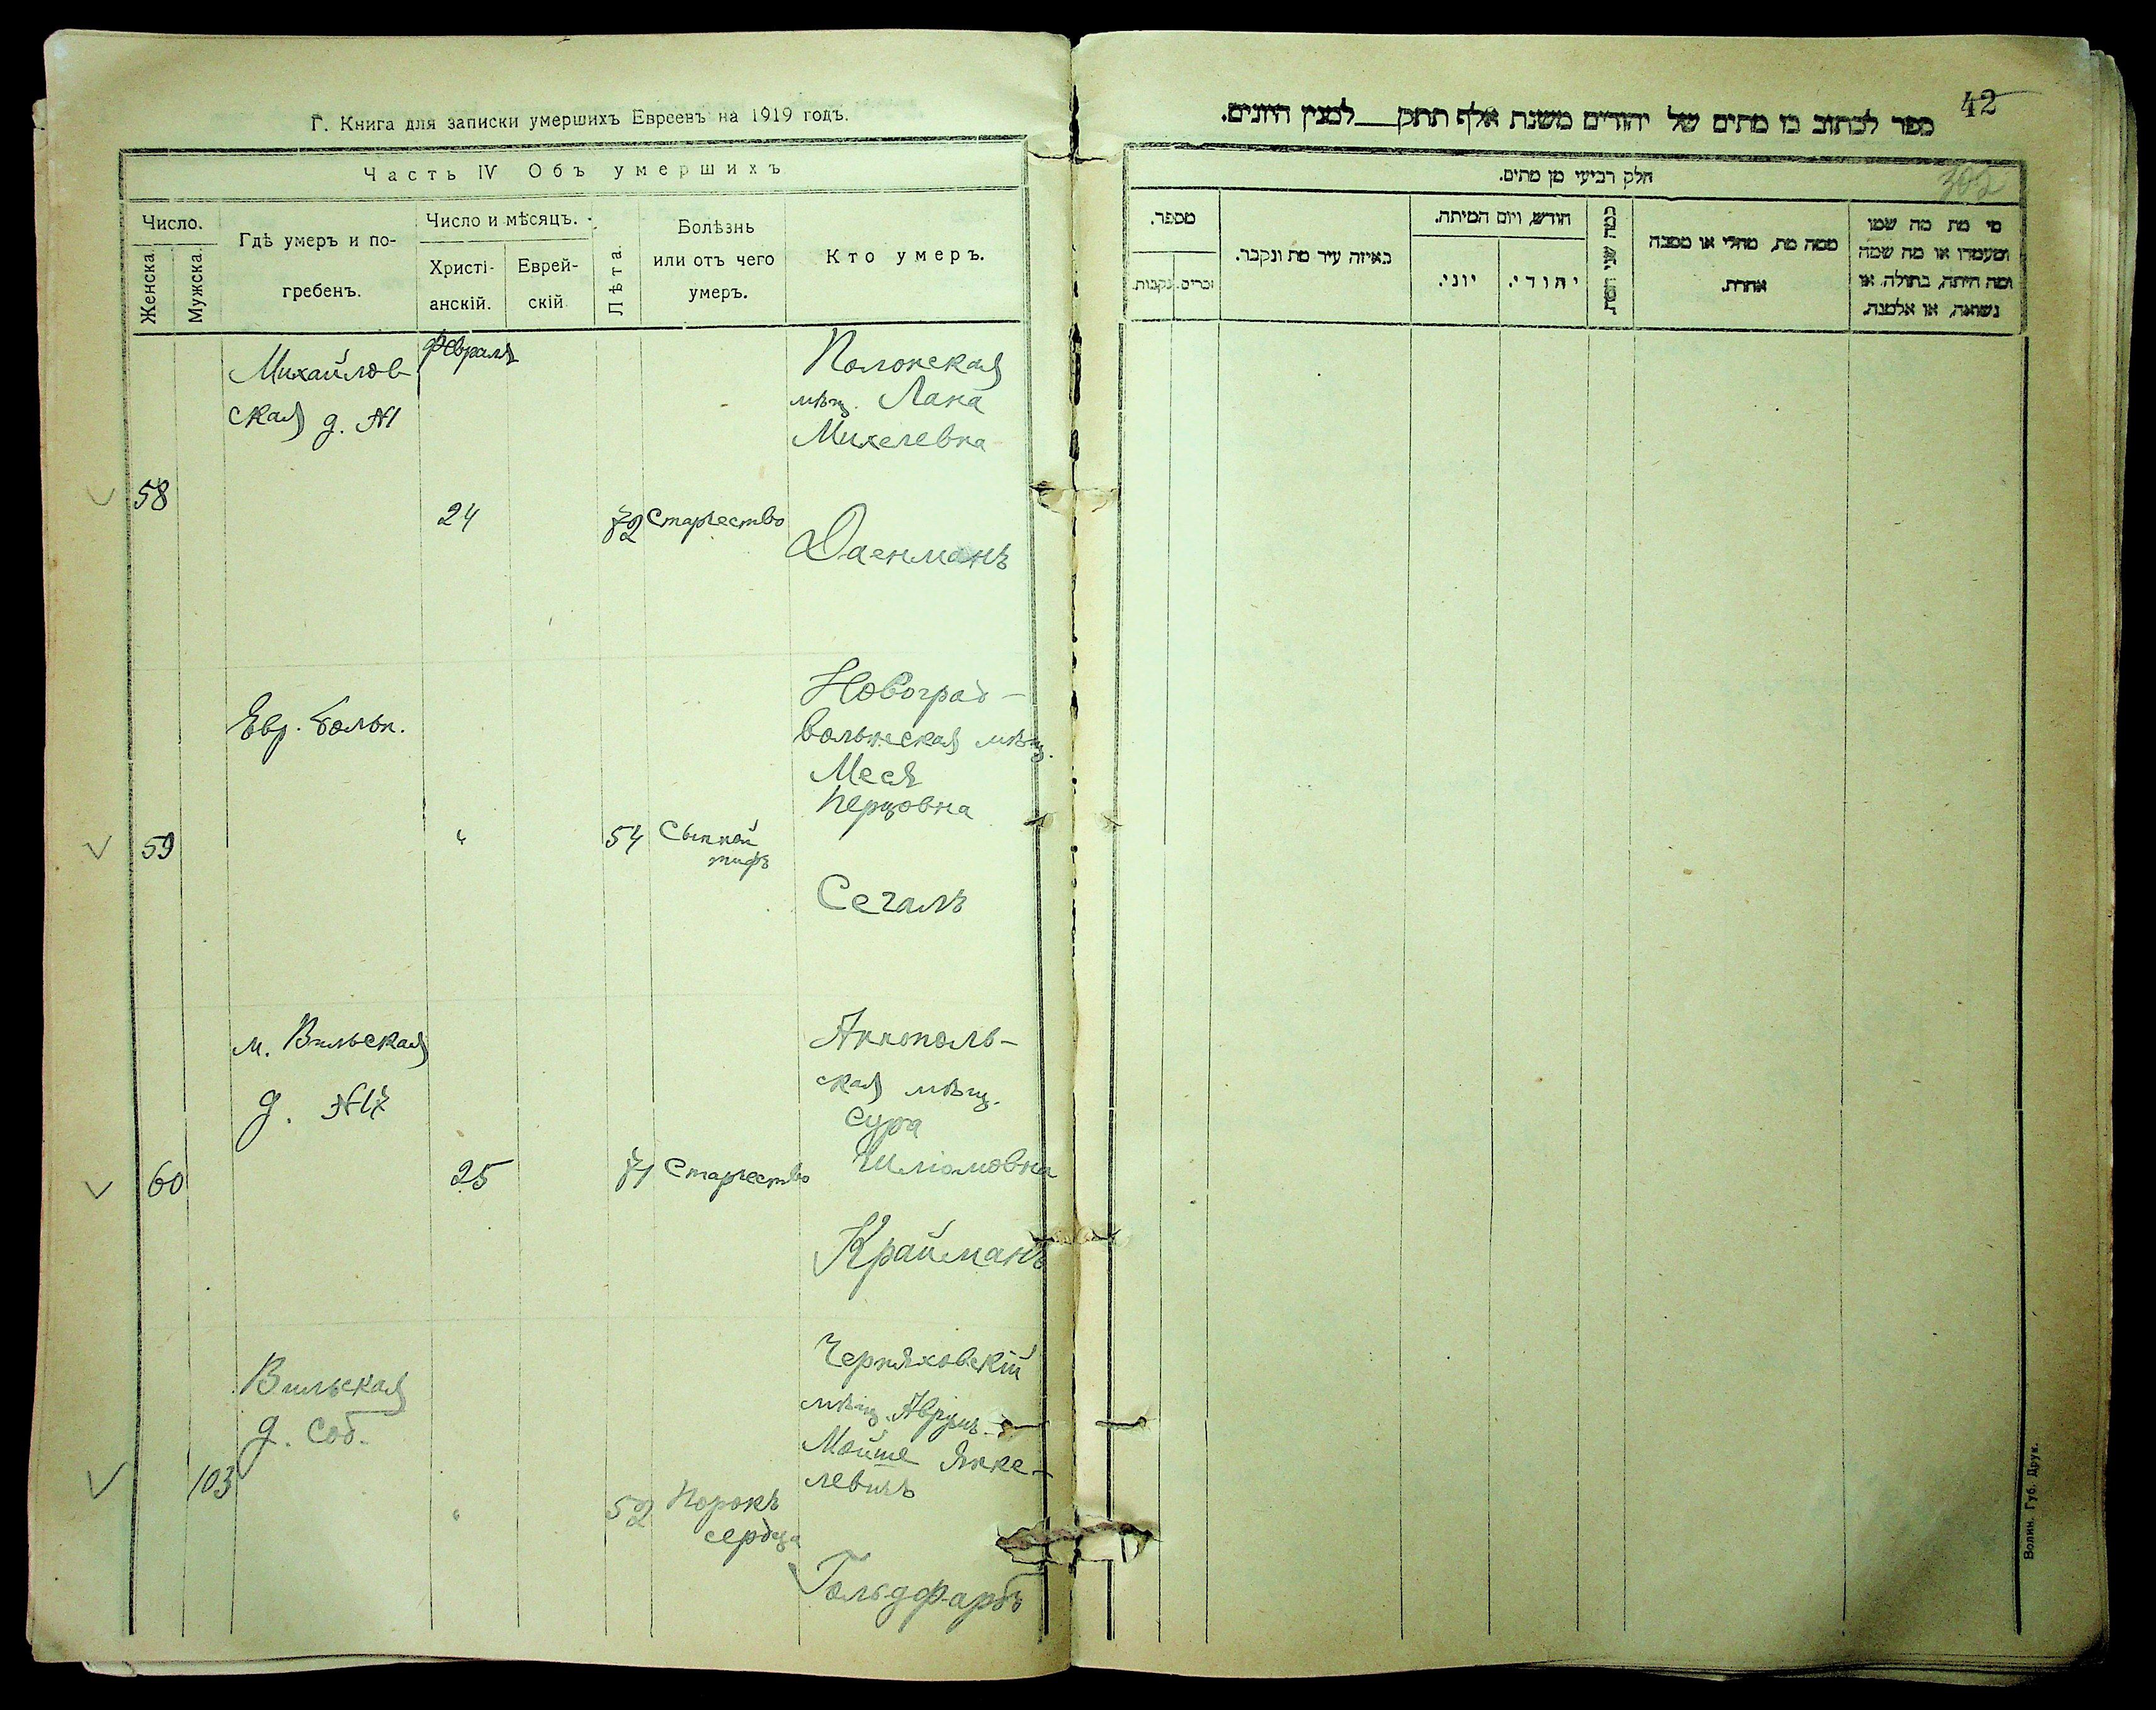 Г. Книга для записки умершихъ Евреевъ на 1919 годъ.
Часть IV Объ умершихъ
Число.
Женска.
Мужска.
Гдѣ умеръ и по-
гребенъ.
Число и мѣсяцъ.
Христі-
анскій.
Еврей-
скій
Лѣта.
Болѣзнь
или отъ чего
умеръ.
Кто умеръ.
Февраля
Михайлов-
ская д. №1
Полонская
мѣщ. Лана
Михелевна
58
24
72
Старчество
Евр. больн.
Новоград-
волынская мѣщ.
Меся
Перцовна
59
"
54
Сыпной
тифъ
Сегалъ
м. Вильская
д. №17
Аннополь-
ская мѣщ.
Сура
Шліомовна
60
25
71
Старчество
Крайманъ
Вильская
д. соб.
Черняховскій
мѣщ. Аврумъ-
Мойше Янке-
левичъ
103
"
52
Порокъ
сердца
Гольдфарбъ
42
ספר לכתוב בו מתים של יהודים משנת אלף תתק__למנין היונים.
305
חלק רביעי מן מתים.
מי מת מה שמו
ומעמדו או מה שמה
ומה היתה, בתולה, או
נשואה, או אלמנה.
ממה מת, מחלי או מסבה
אחרת.
כמה שני המת
חודש, ויום המיתה.
יהודי.
יוני.
באיזה עיר מת ונקבר.
מספר.
זכרים.
נקבות.
Волин. Губ. Друк.